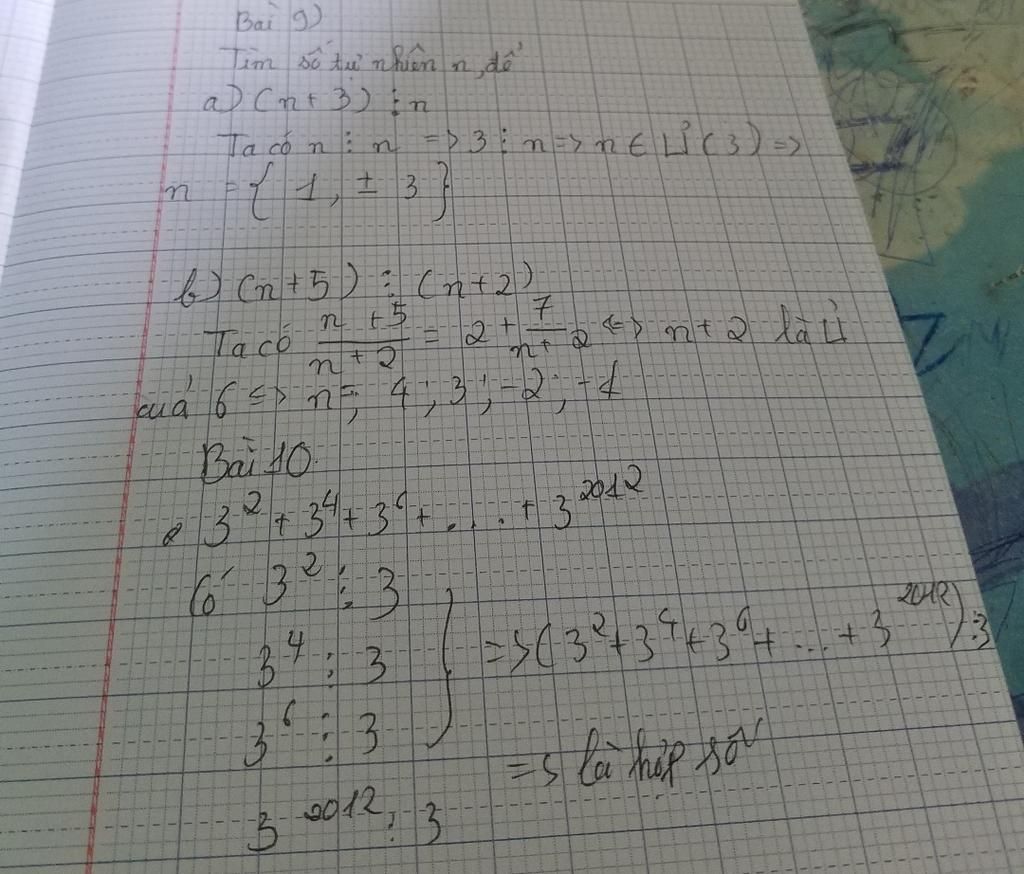 Bài 9)
Tìm số tự nhiên n, để
a) (n+3) ⋮ n
Ta có n ⋮ n => 3 ⋮ n => n ∈ Ư (3) =>
n = { 1, ± 3 }
b) (n+5) ⋮ (n+2)
Ta có \frac{n+5}{n+2} = 2 + \frac{7}{n+2} <=> n+2 là Ư
của 6 <=> n = ; 4 ; 3 ; -2 ; -1
Bài 10.
3^2 + 3^4 + 3^6 + .... + 3^{2012}
Có 3^2 ⋮ 3
3^4 ⋮ 3
=> (3^2 + 3^4 + 3^6 + ... + 3^{2012}) ⋮ 3
3^6 ⋮ 3
=> là hợp số
3^{2012} ⋮ 3